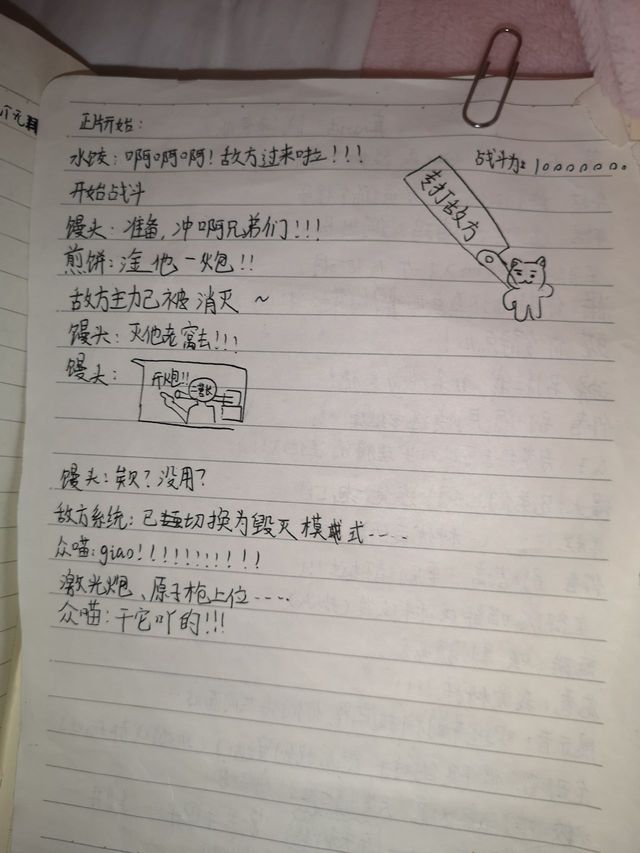 正片开始:
水饺:啊啊啊!敌方过来啦!!!
战斗力:10000000
开始战斗
专打敌方
馒头:准备,冲啊兄弟们!!!
煎饼:淦他一炮!!
敌方主力已被消灭~
馒头:灭他老窝去!!!
馒头:
开炮!!
馒头:欸?没用?
敌方系统:已切换为毁灭模式....
众喵:giao!!!!!!!!!!
激光炮、原子枪上位.....
众喵:干它吖的!!!
个元